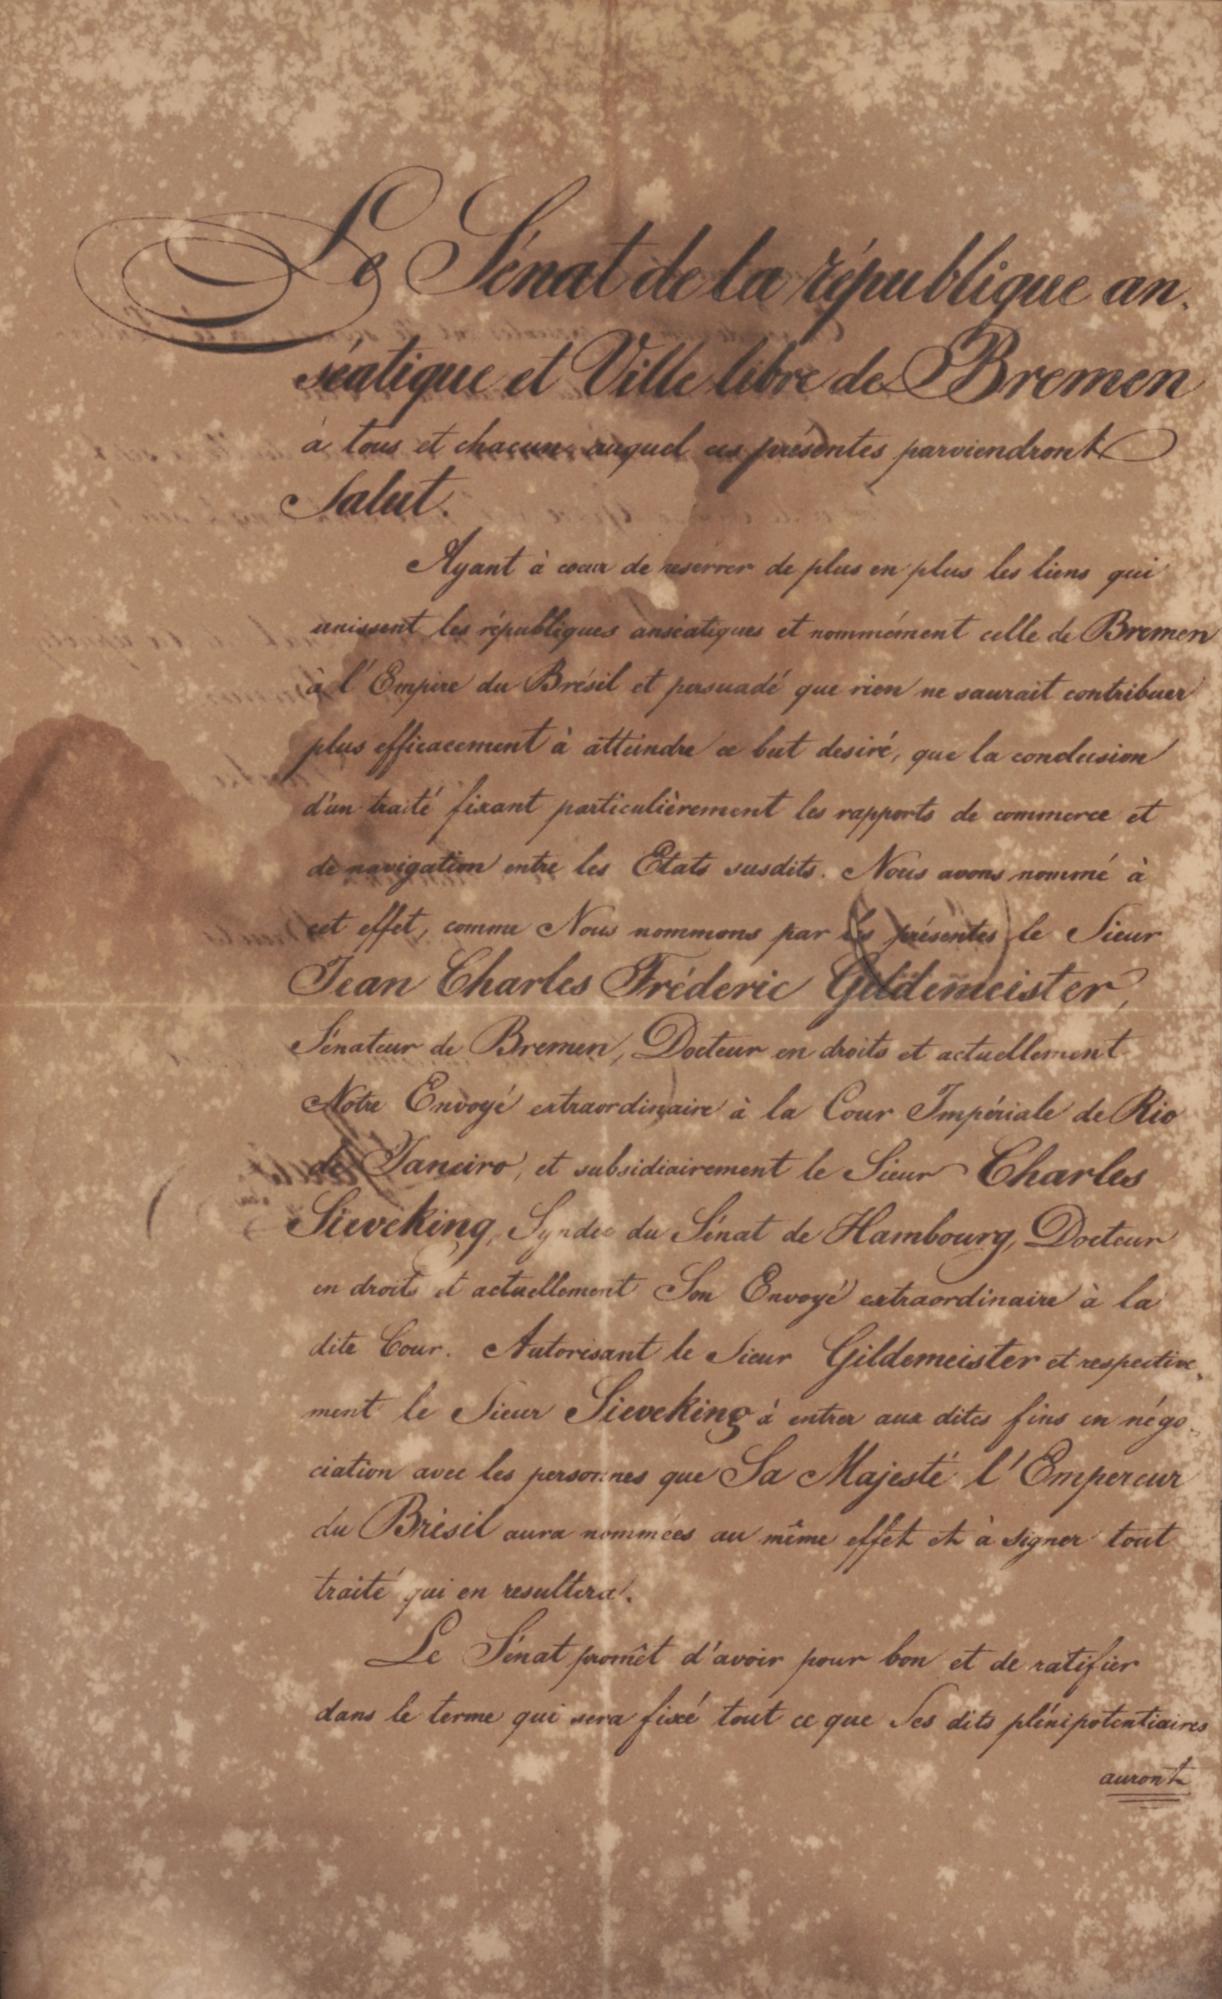 Le Sénat de la république an-
séatique et Ville libre de Bremen
à tous et chacun auquel ces présentes parviendront
Salut.
Ayant à coeur de reserrer de plus en plus les liens qui
unissent les républiques anséatiques et nommément celle de Bremen
à l'Empire du Brésil et persuadé que rien ne saurait contribuer
plus efficacement à atteindre ce but desiré, que la conclusion
d'un traité fixant particulièrement les rapports de commerce et
de navigation entre les Etats susdits. Nous avons nommé à
cet effet, comme Nous nommons par les présentes le Sieur
Jean Charles Fréderic Gildemeister,
Sénateur de Bremen, Docteur en droits et actuellement
Notre Envoyé extraordinaire à la Cour Impériale de Rio
de Janeiro, et subsidiairement le Sieur Charles
Sieveking, Syndic du Sénat de Hambourg, Docteur
en droits et actuellement Son Envoyé extraordinaire à la
dite Cour. Autorisant le Sieur Gildemeister et respective-
ment le Sieur Sieveking à entrer aux dites fins en négo-
ciation avec les personnes que Sa Majesté l'Empereur
du Brésil aura nommées au même effet et à signer tout
traité qui en resultera.
Le Sénat promêt d'avoir pour bon et de ratifier
dans le terme qui sera fixé tout ce que Ses dits plénipotentiaires
auront